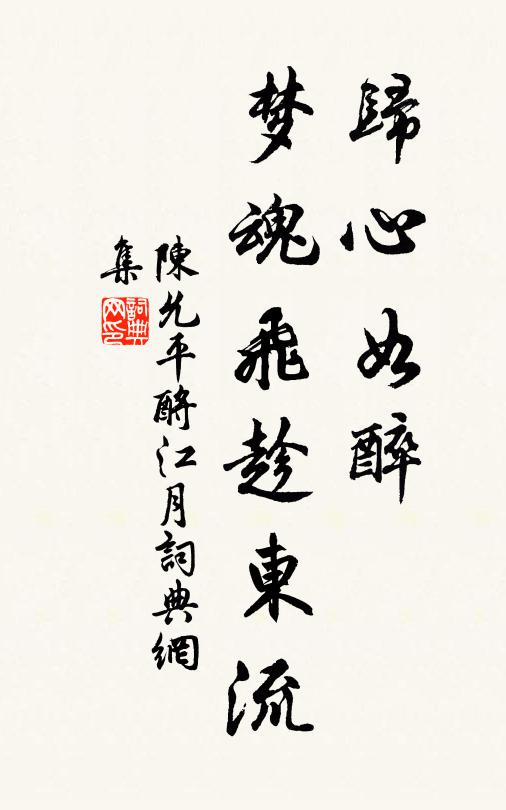 歸心如醉
梦魂飛趁東流
陳允平酹江月詞典網
集
詞典
网印